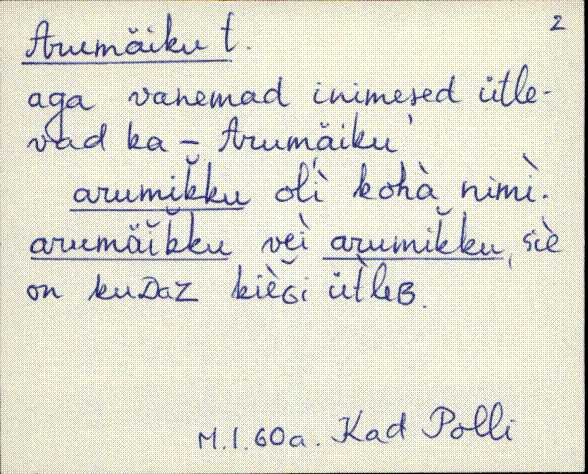 2
Arumäiku t.
aga vanemad inimesed ütle-
vad ka – Arumäiku'
arumik̆ku olì kohà nimì.
arumäik̆ku vei arumik̆ku, siè
on kuDaZ kièGi ütleB.
M. I. 60a. Kad Polli